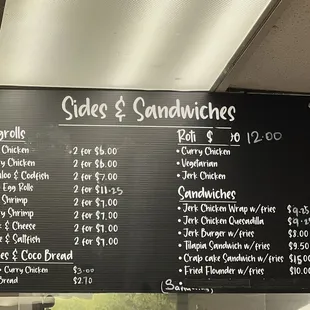 Sides & Sandwiches
grolls
Chicken 2 for $6.00
y Chicken 2 for $6.00
loo & Codfish 2 for $7.00
Egg Rolls 2 for $11.25
Shrimp 2 for $7.00
y Shrimp 2 for $7.00
& Cheese 2 for $7.00
& Saltfish 2 for $7.00
es & Coco Bread
Curry Chicken $3.00
Bread $2.70
Roti $ 12.00
• Curry Chicken
• Vegetarian
• Jerk Chicken
Sandwiches
• Jerk Chicken Wrap w/fries
• Jerk Chicken Quesadilla
• Jerk Burger w/fries $8.00
• Tilapia Sandwich w/fries $9.50
• Crab cake Sandwich w/fries $15.00
• Fried Flounder w/fries $10.0